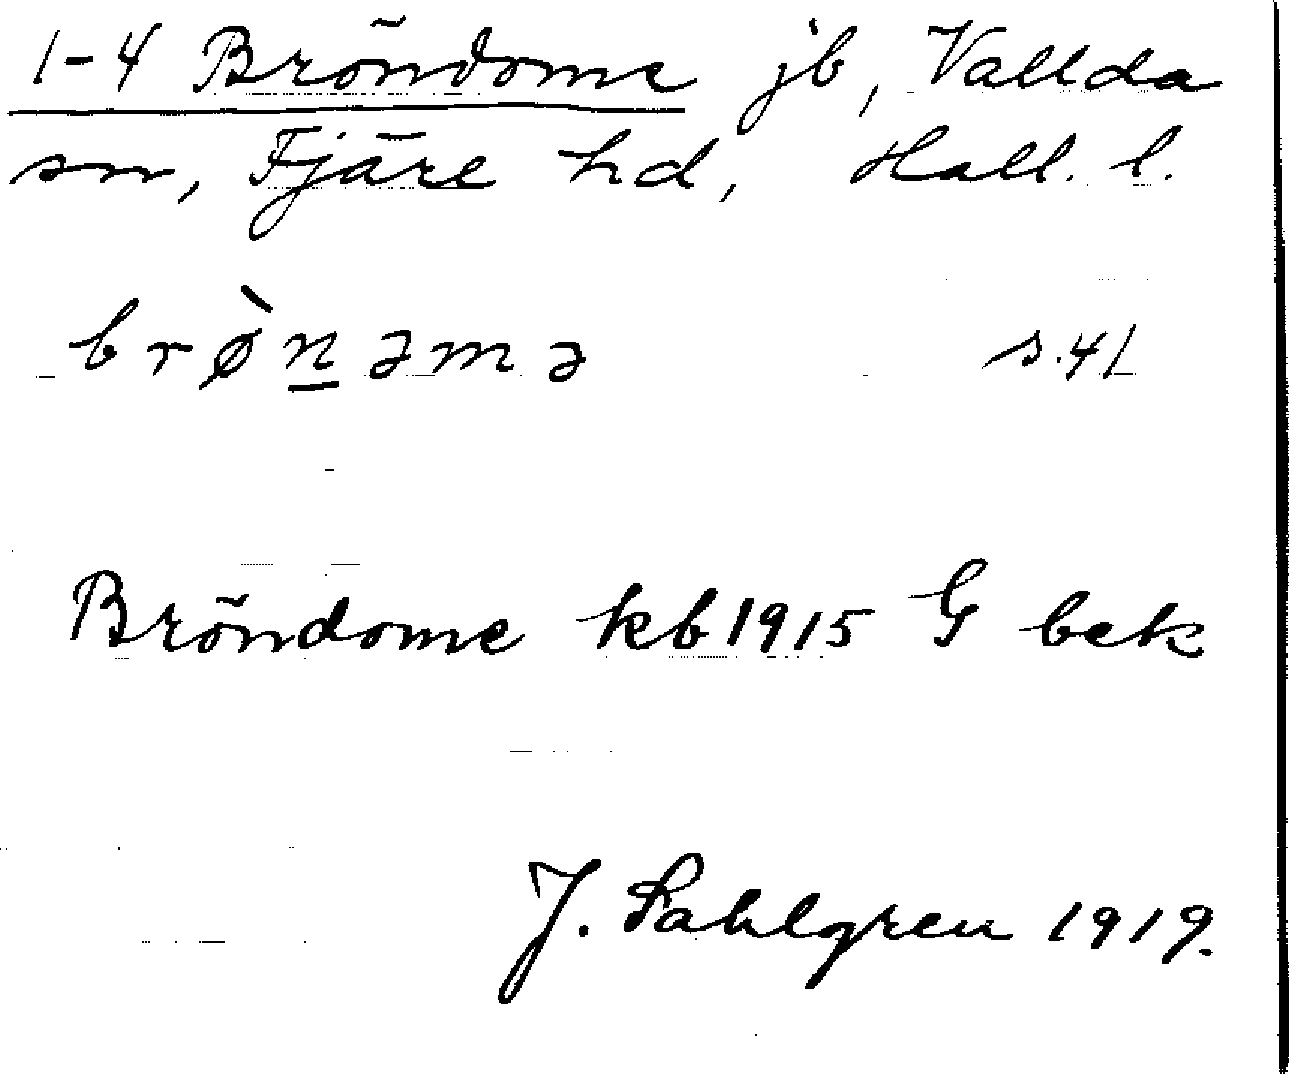 1-4 Bröndome jb, Vallda
sn, Fjäre hd, Hall. l.
brø̀n̲əmə s. 41
Bröndome kb 1915 G bek
J. Sahlgren 1919.